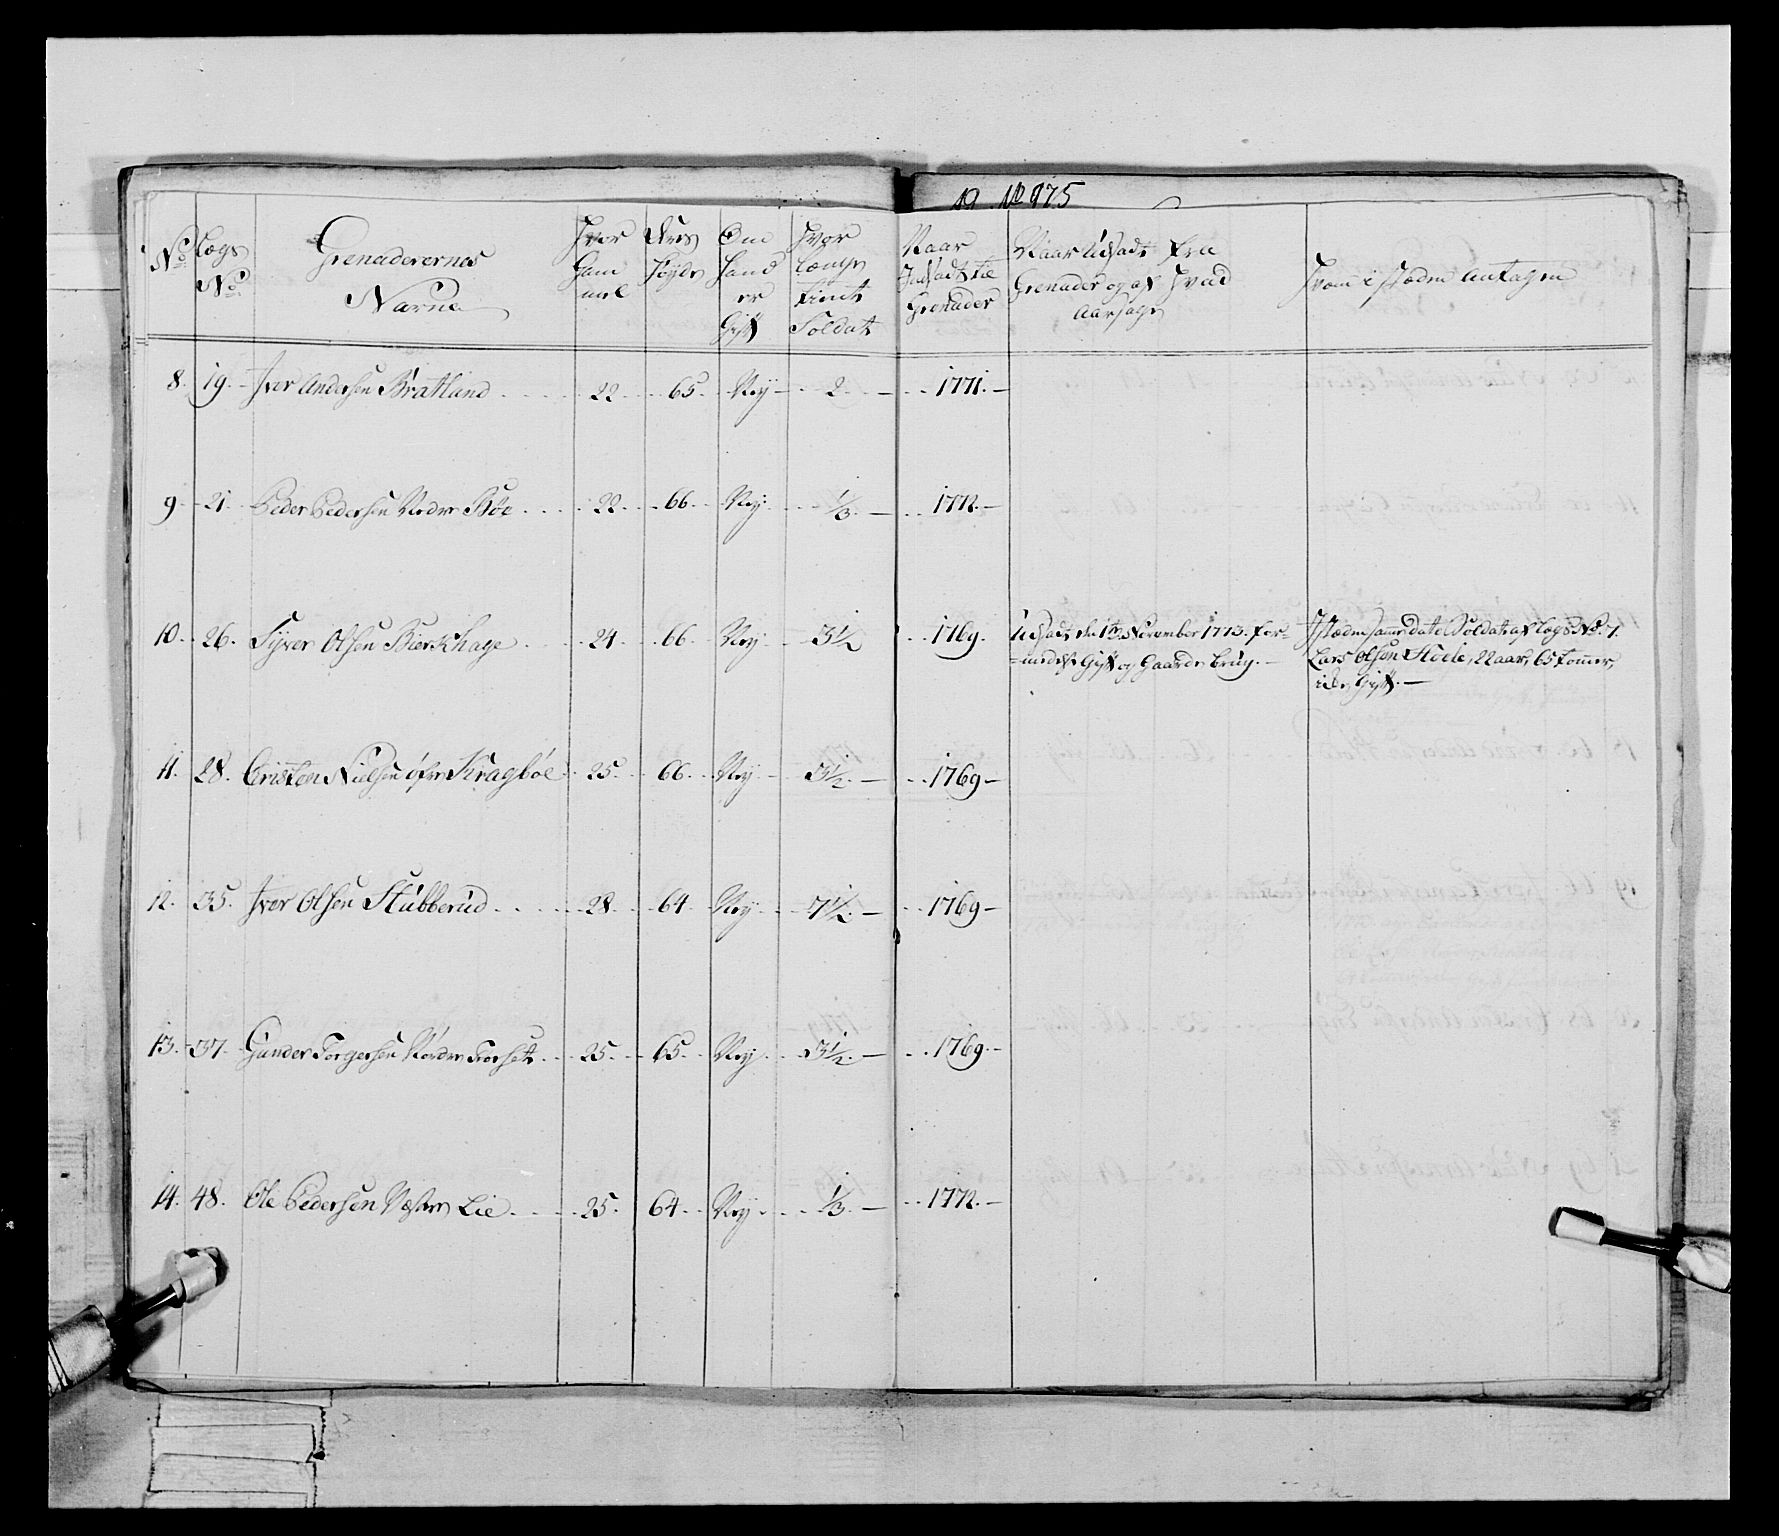 19. No 975
No
Lægs No
Grenaderernes Navne
Hvor Gam mel
Deres Høyde
Om hand er Gift
Hvor længe tient Soldat
Naar Indsadt til Grenader
Naar Udsadt fra Grenader og af Hvad Aarsage
Hvem i stæden Antagen
8. 19. Iver Andersen Bratland 22 65. Ney 2. 1771.
9 21. Peder Pedersen Nedre Bøe 22. 66. Ney 1/3. 1772.
10. 26. Syver Olsen Bierkhage 24 66 Ney 3 1/2 1769.
Udsadt den 1te November 1773. for=
=medelst Gift og Gaarde brug.
I stæden samme dato Soldat af Lægs No 7.
Lars Olsen Støele, 22 aar, 65 tommer,
icke Gift.
11. 28. Christen Nielsen øfre Kragbøe 25. 66. Ney 3 1/2. 1769
12. 35. Iver Olsen Stubberud 28. 64. Ney 7 1/2. 1769
13. 37. Gunder Torgersen Nordre Forset 25. 65. Ney 3 1/2. 1769.
14. 48. Ole Pedersen Vestre Lie 25. 64. Ney 1/3. 1772.